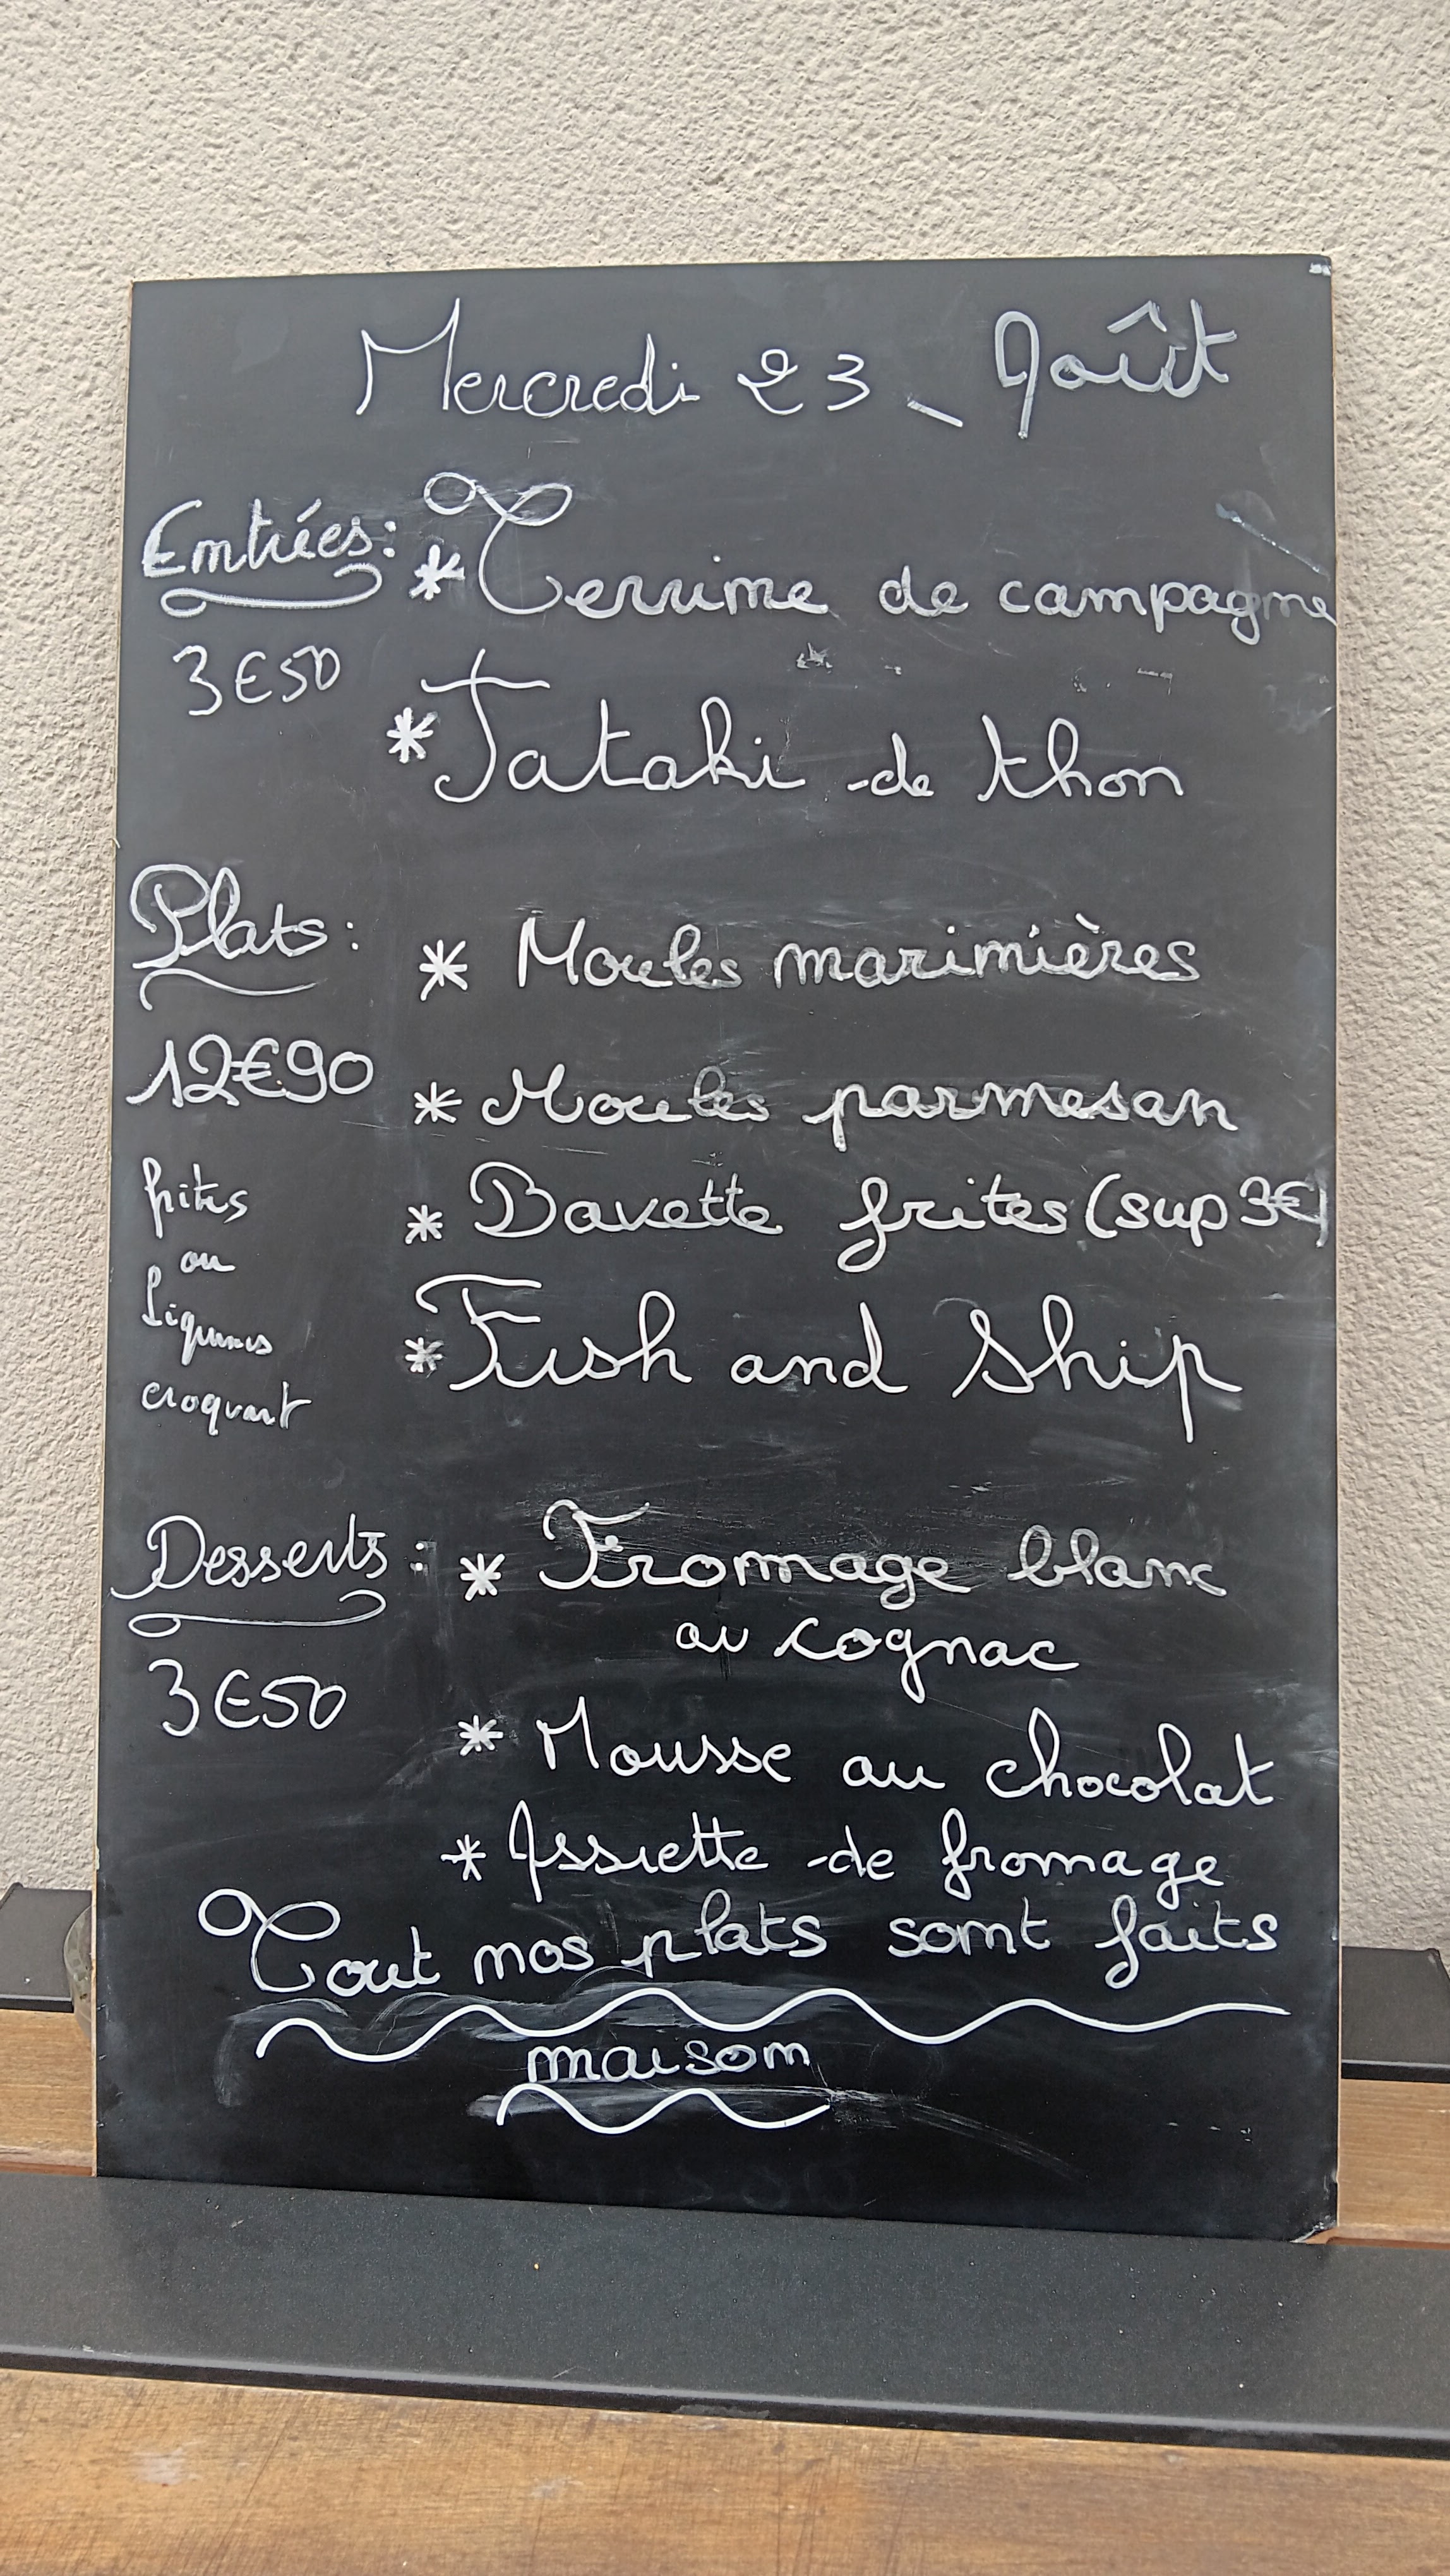 Mercredi 23 - Août
Entrées :
3€50
* Terrine de campagne
* Tataki de thon
Plats :
12€90
frites
ou
légumes
croquant
* Moules marinières
* Moules parmesan
* Bavette frites (sup 3€)
* Fish and Ship
Desserts :
3€50
* Fromage blanc
au cognac
* Mousse au chocolat
* Assiette de fromage
Tout nos plats sont faits
maison